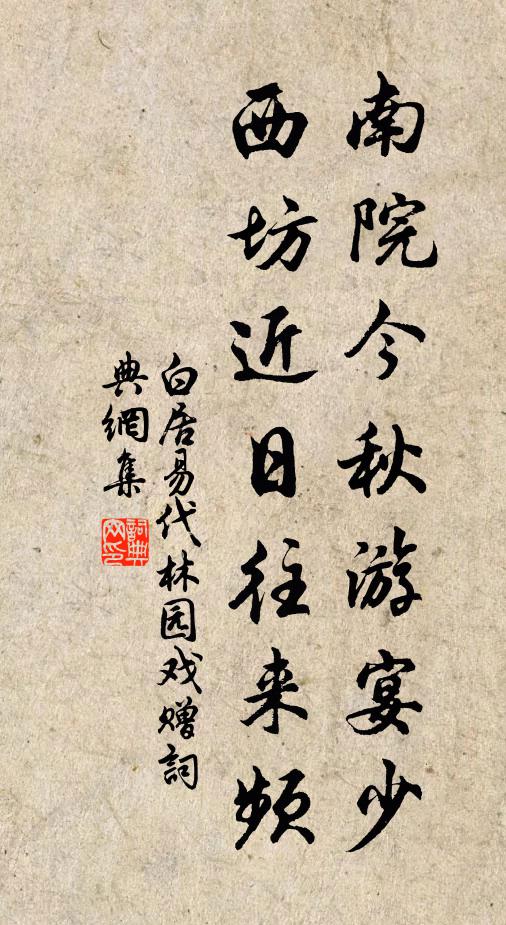 南院今秋游宴少
西坊近日往来频
白居易代林园戏赠詞
典網集
詞典网印